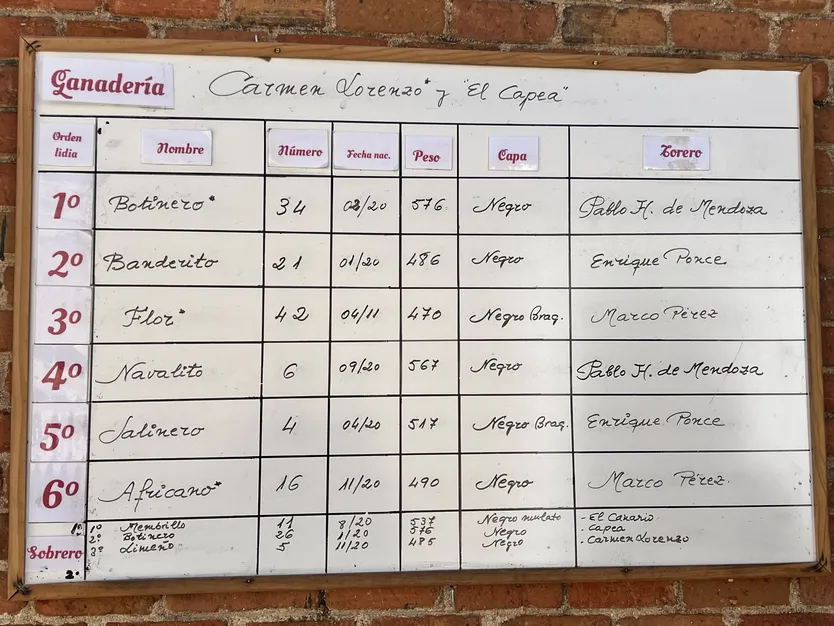 Ganadería Carmen Lorenzo* y "El Capea"
Orden lidia Nombre Número Fecha nac. Peso Capa Torero
1º Botinero* 34 02/20 576 Negro Pablo H. de Mendoza
2º Banderito 21 01/20 486 Negro Enrique Ponce
3º Flor* 42 04/11 470 Negro Brag. Marco Pérez
4º Navalito 6 09/20 567 Negro Pablo H. de Mendoza
5º Salinero 4 04/20 517 Negro Brag. Enrique Ponce
6º Africano* 16 11/20 490 Negro Marco Pérez.
Sobrero
1º Membrillo 11 8/20 537 Negro mulato - El Canario
2º Botinero 26 1/20 576 Negro - Capea
3º Limeño 5 11/20 485 Negro - Carmen Lorenzo
2º